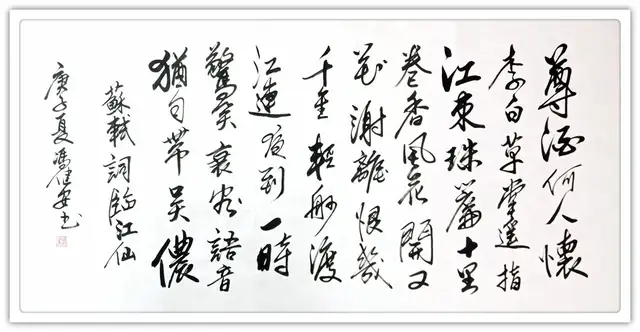 尊酒何人懷
李白草堂遥指
江東珠簾十里
卷香風花開又
花謝離恨幾
千重輕舸渡
江連夜到一時
驚笑衰容語音
猶自帶吴儂
蘇軾詞臨江仙
庚子夏馮書